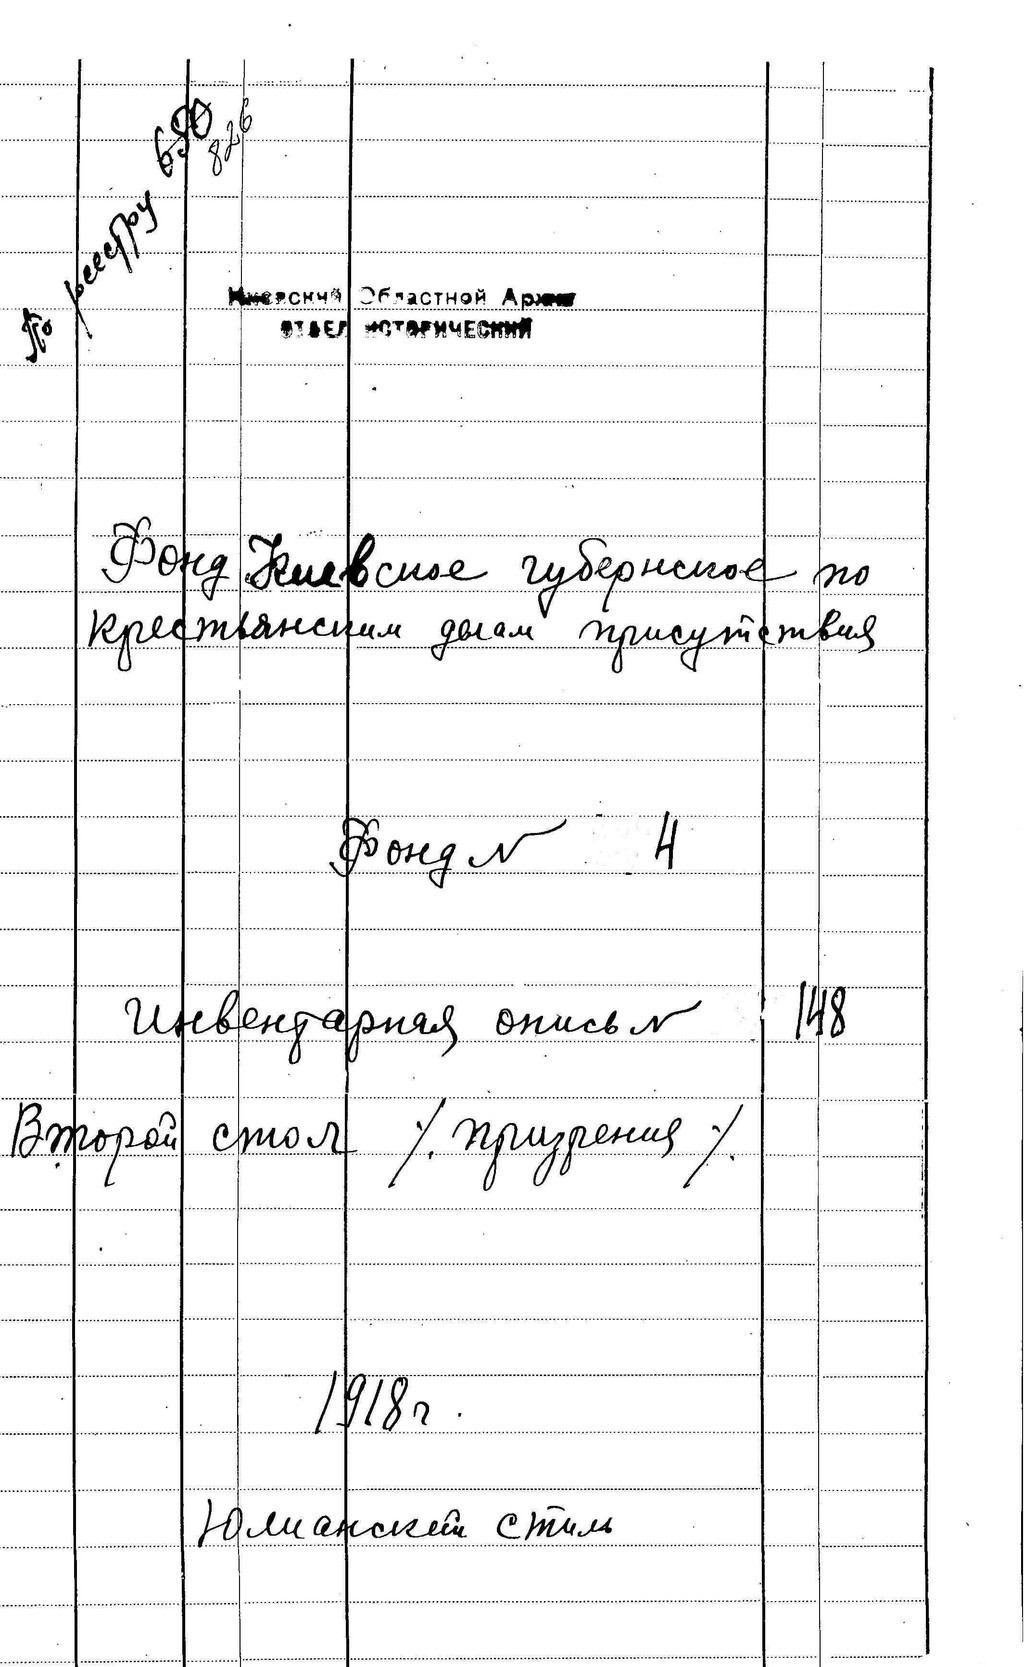 По реестру 680
826
Киевский Областной Архив
ОТДЕЛ ИСТОРИЧЕСКИЙ
Фонд Киевское губернское по
крестьянским делам присутствия
Фонд № 4
Инвентарная опись № 148
Второй стол /. призрения /.
1918 г.
Юлианский стиль